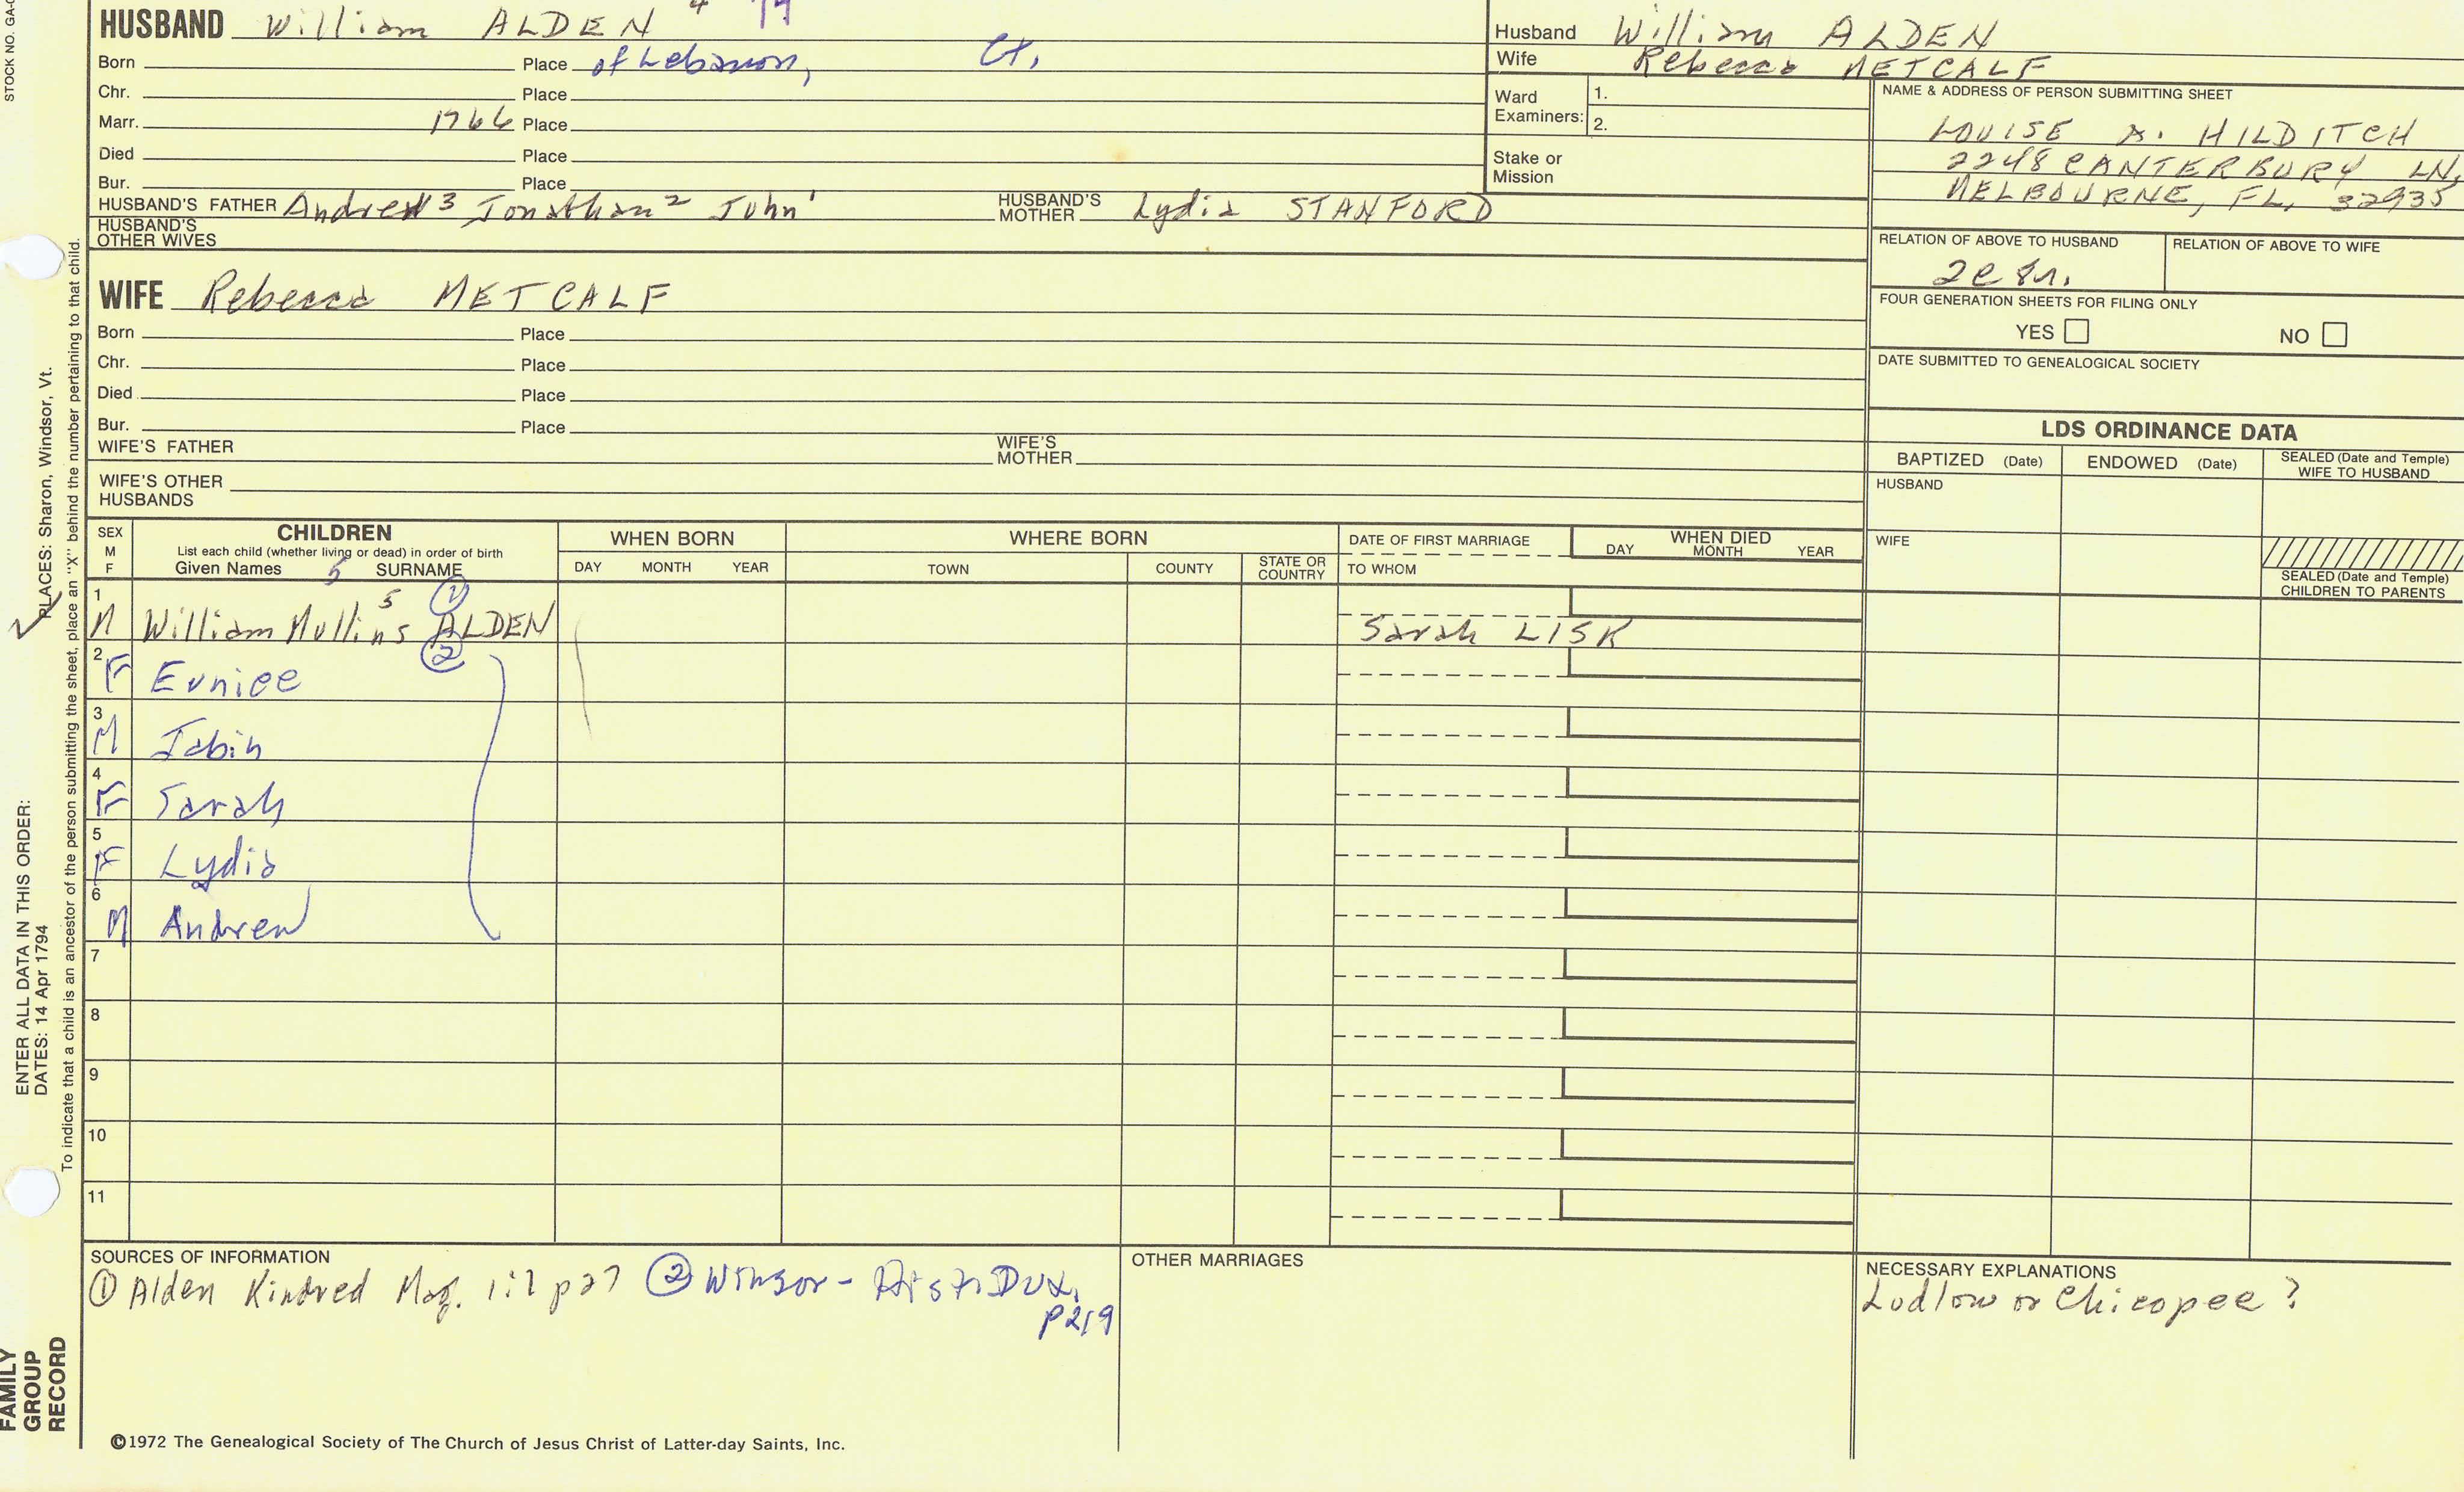 STOCK NO. GA-
HUSBAND William ALDEN 4 79
Born Place of Lebanon, Ct.
Chr. Place
Marr. 1766 Place
Died Place
Bur. Place
HUSBAND'S FATHER Andrew 3 Jonathan 2 John 1 HUSBAND'S MOTHER Lydia STANFORD
HUSBAND'S OTHER WIVES
Husband William ALDEN
Wife Rebecca METCALF
Ward Examiners: 1.
2.
Stake or Mission
NAME & ADDRESS OF PERSON SUBMITTING SHEET
LOUISE A. HILDITCH
2248 CANTERBURY LN,
MELBOURNE, FL, 32935
RELATION OF ABOVE TO HUSBAND RELATION OF ABOVE TO WIFE
FOUR GENERATION SHEETS FOR FILING ONLY
YES NO
DATE SUBMITTED TO GENEALOGICAL SOCIETY
WIFE Rebecca METCALF
Born Place
Chr. Place
Died Place
Bur. Place
WIFE'S FATHER WIFE'S MOTHER
WIFE'S OTHER HUSBANDS
LDS ORDINANCE DATA
BAPTIZED (Date) ENDOWED (Date) SEALED (Date and Temple) WIFE TO HUSBAND
HUSBAND
WIFE
SEALED (Date and Temple) CHILDREN TO PARENTS
SEX M F
CHILDREN
List each child (whether living or dead) in order of birth
Given Names 5 SURNAME
WHEN BORN
DAY MONTH YEAR
WHERE BORN
TOWN COUNTY STATE OR COUNTRY
DATE OF FIRST MARRIAGE
TO WHOM
WHEN DIED
DAY MONTH YEAR
1 M William Mullins 5 ALDEN ① Sarah LISK
2 F Eunice ②
3 M Jabin
4 F Sarah
5 F Lydia
6 M Andrew
7
8
9
10
11
SOURCES OF INFORMATION
① Alden Kindred Mag. 1:1 p27 ② Winsor - Hist. Dux.
p219
OTHER MARRIAGES
NECESSARY EXPLANATIONS
Ludlow or Chicopee?
©1972 The Genealogical Society of The Church of Jesus Christ of Latter-day Saints, Inc.
ENTER ALL DATA IN THIS ORDER:
DATES: 14 Apr 1794 PLACES: Sharon, Windsor, Vt.
To indicate that a child is an ancestor of the person submitting the sheet, place an "X" behind the number pertaining to that child.
FAMILY
GROUP
RECORD